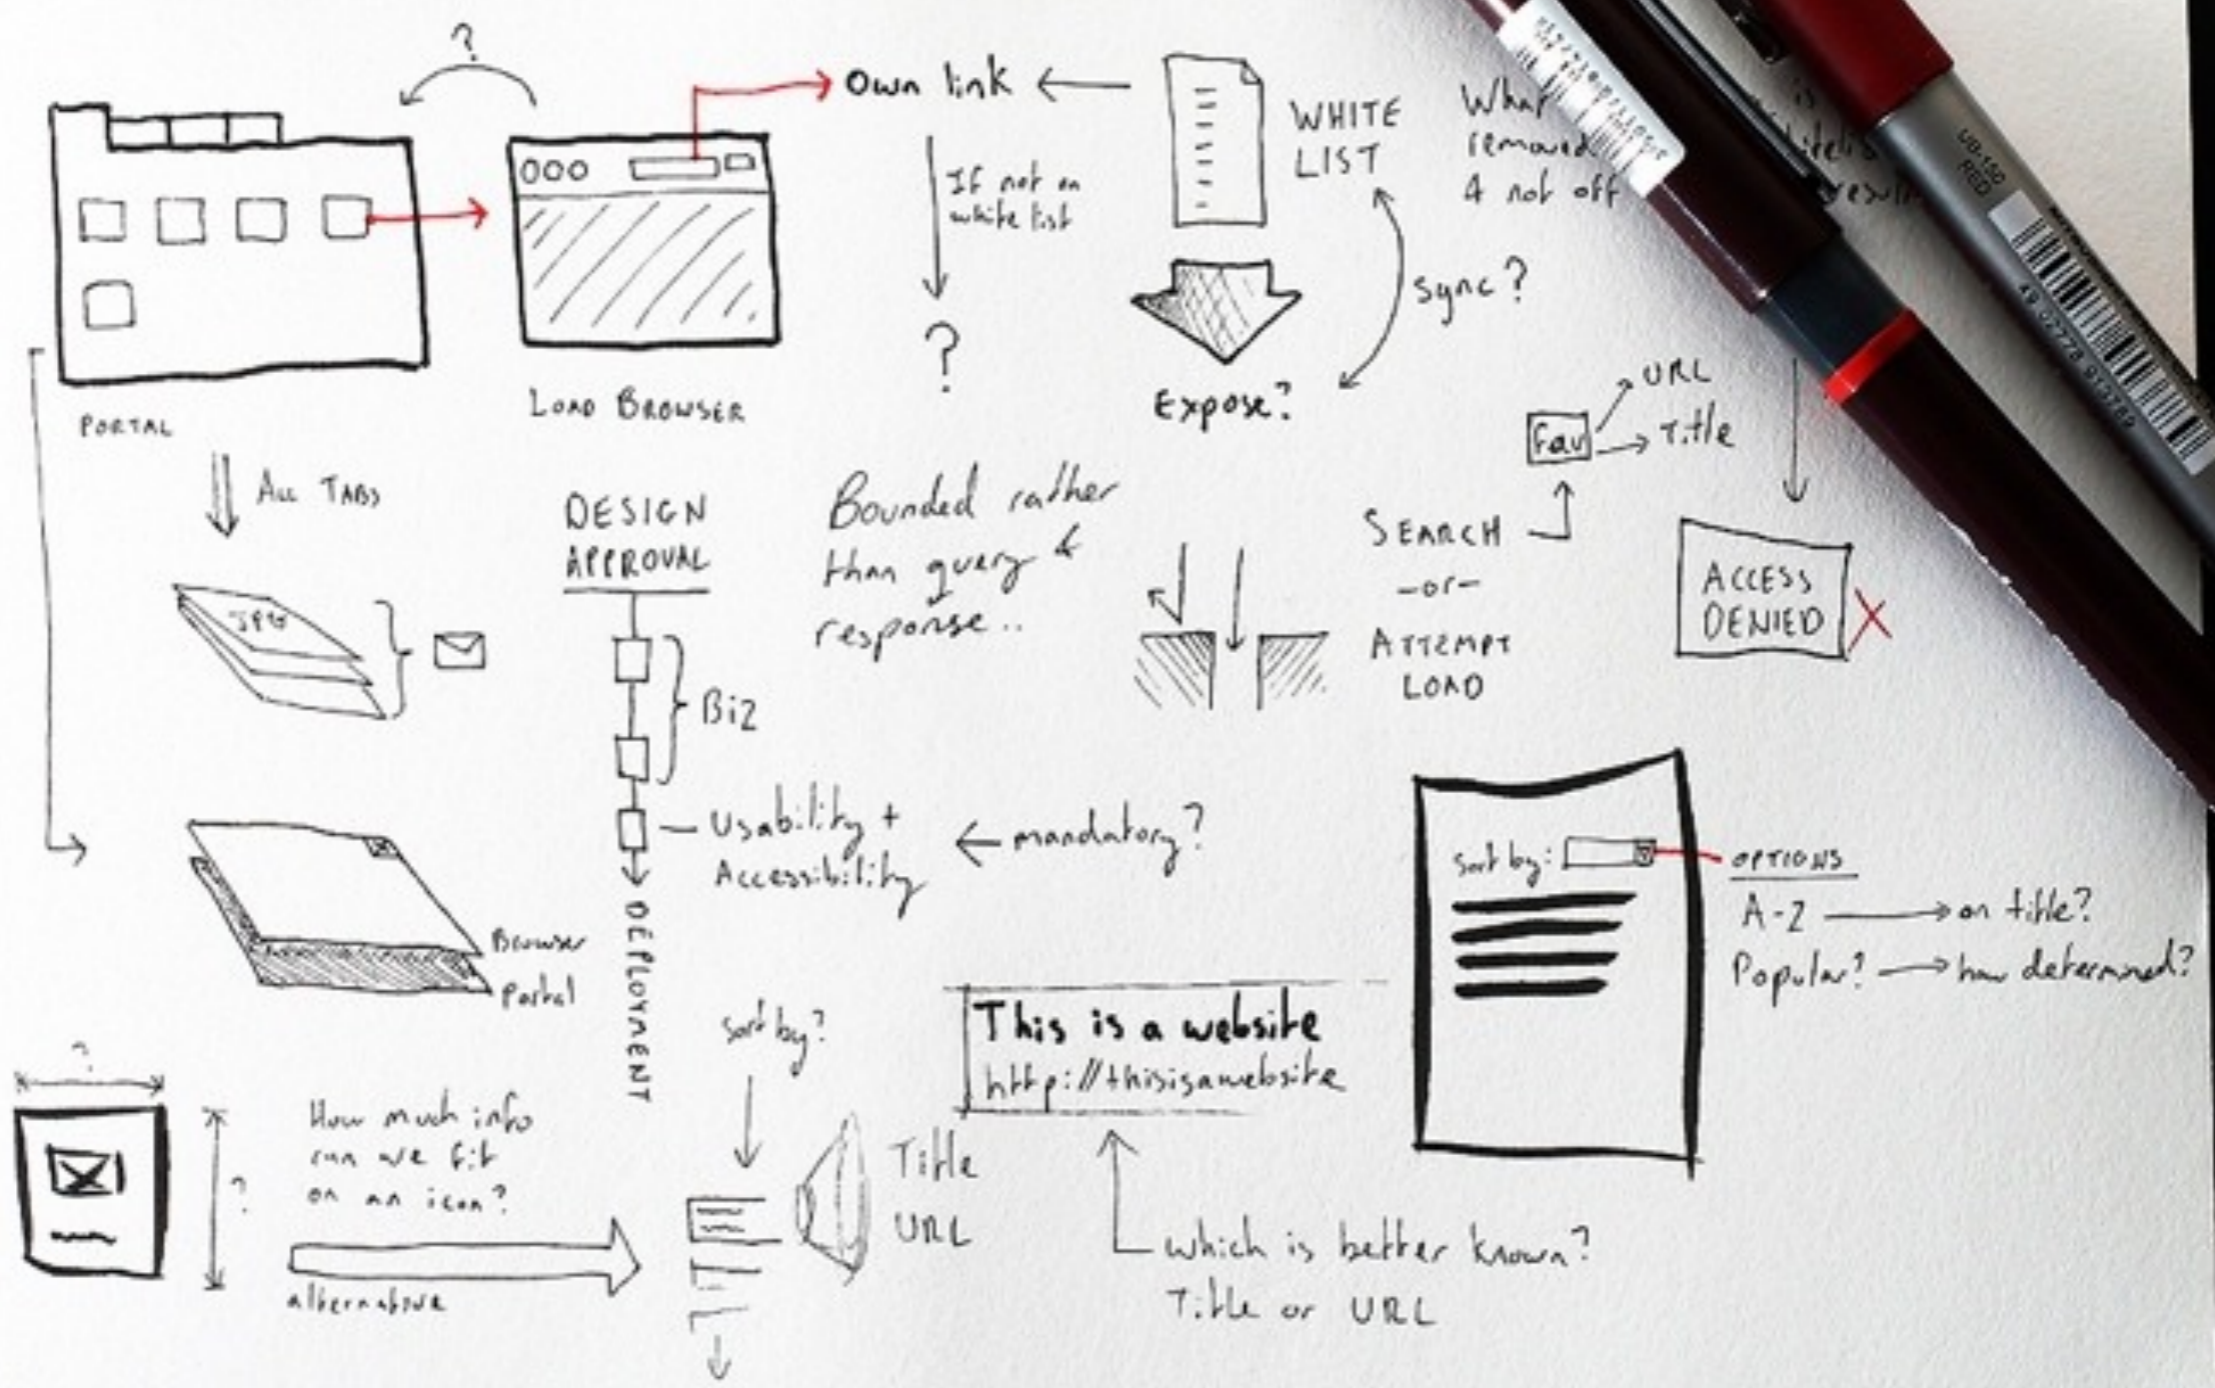 ?
Own link
WHITE
LIST
removed
& not off
If not on
white list
?
sync?
Expose?
PORTAL
LOAD BROWSER
URL
Title
Fav
ALL TABS
DESIGN
APPROVAL
Bounded rather
than query &
response..
SEARCH
-or-
ATTEMPT
LOAD
ACCESS
DENIED
X
JPG
Biz
Usability +
Accessibility
mandatory?
DEPLOYMENT
Browser
Portal
Sort by:
OPTIONS
A-Z
on title?
Popular?
how determined?
Sort by?
This is a website
http://thisisawebsite
?
?
How much info
can we fit
on an icon?
alternative
Title
URL
which is better known?
Title or URL
UB-150
RED
49 02778 913789